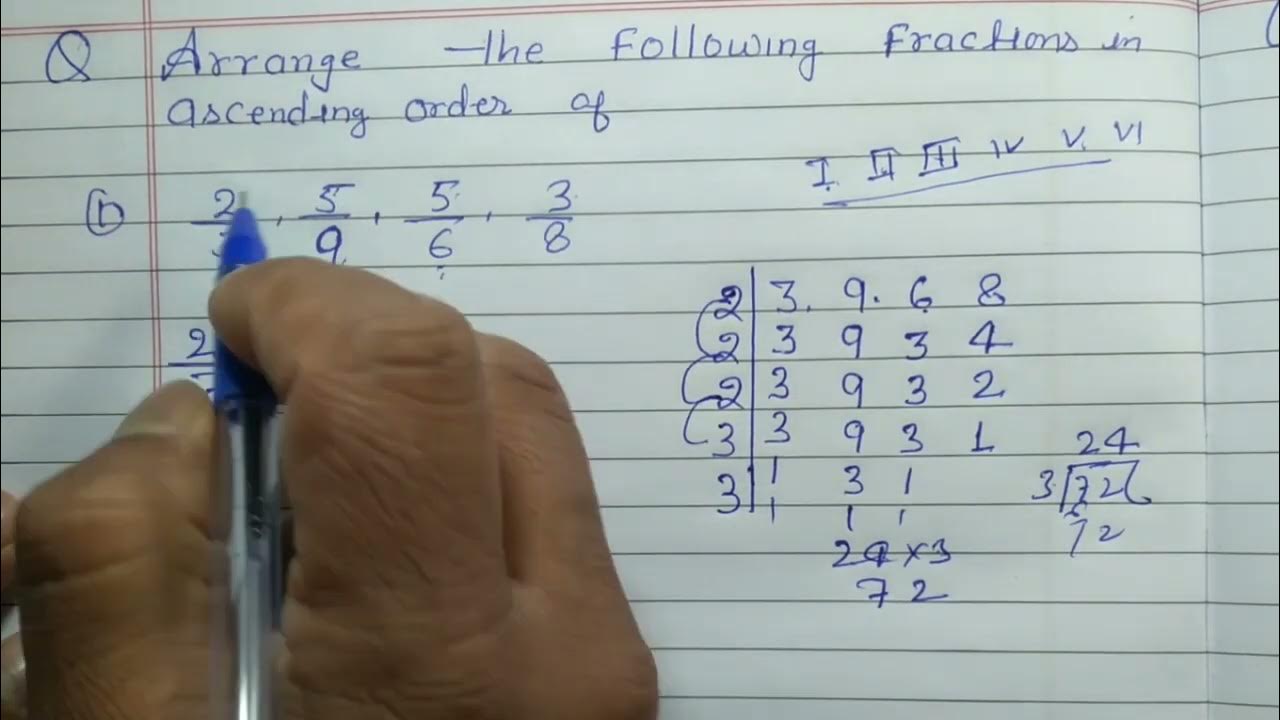 Q Arrange the Following Fractions in
ascending order of
I. II III IV V. VI
① 2/3, 5/9, 5/6, 3/8
2 | 3. 9. 6 8
2 | 3 9 3 4
2 | 3 9 3 2
3 | 3 9 3 1
3 | 1 3 1
1 1 1
24 × 3
72
24
3 72
72
2